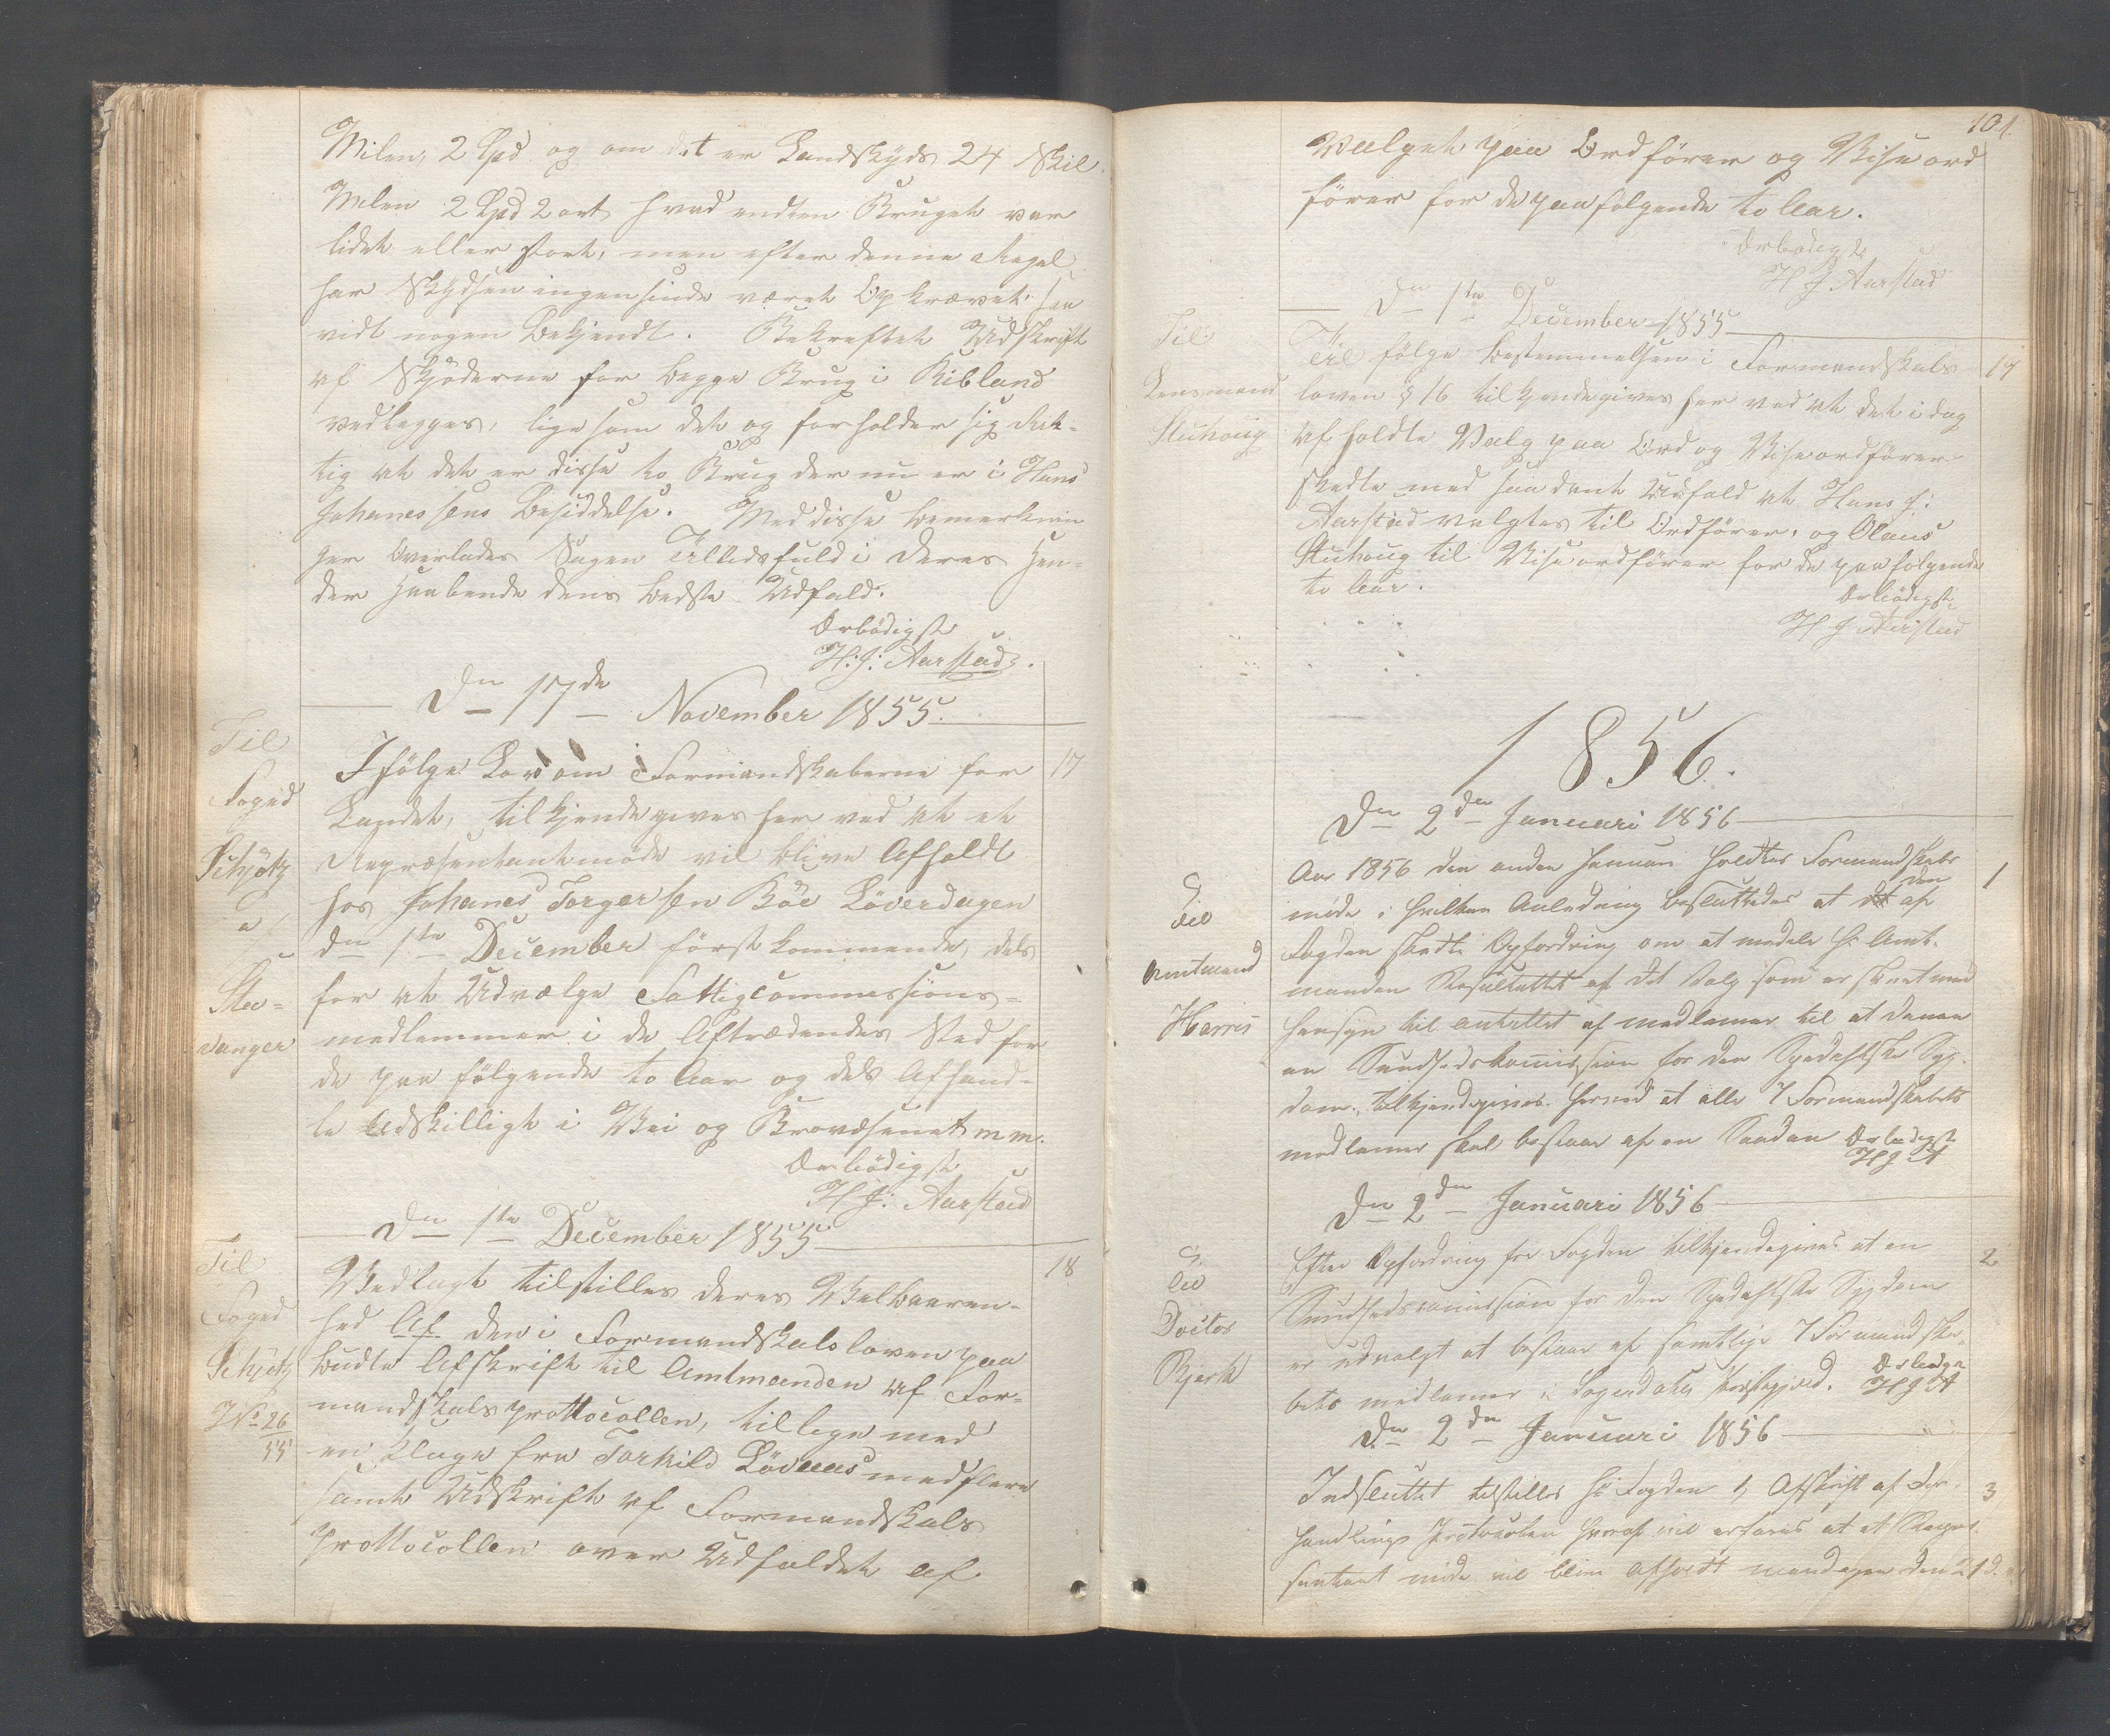 Milen, 2 Spd og om det er Landskyds 24 Skil.
Milen 2 Spd 2 ort hvad endten Bruget var
lidet eller stort, men efter denne Regel
har Skydsen ingensinde været Opkrævet saa
vidt nogen Bekjendt. Bekreftet Udskrift
af Skjöderne for begge Brug i Ribland
vedlegges, ligesom det og forholder sig Rik-
tig at det er disse to Brug der nu er i Hans
Johanessens Besiddelse. Med disse bemerknin
ger Overlades Sagen Tillidsfuld i Deres Hen-
der Haabende dens bedste Udfald.
Ærbödigst
H: J: Aarstad.
Dn 17de November 1855.
Til
Foged
Schjøtz
a
Sta-
vanger
Ifölge Lov om Formandskaberne for 17
Landet, tilkjendegives her ved at et
Repræsentantmöde vil blive Afholdt
hos Johanes Torgersen Böe Löverdagen
dn 1ste December förstkommende, dels
for at Udvælge Fattigcommissions-
medlemmer i de Aftrædendes Sted for
de paa fölgende to Aar og dels Afhand-
le Adskilligt i Vei og Brovæsenet m m.
Ærbödigst
H J: Aarstad
Dn 1ste December 1855
Til
Foged
Schjøtz
No 26/55
Vedlagt tilstilles deres Velbaaren- 18
hed Af den i Formandskabsloven paa
budte Afskrift til Amtmanden af For-
mandskabsprottocollen, tillige med
en Klage fra Torkild Lövaas med flere
samt Udskrift af Formandskabs
prottocollen over Udfaldet af
101.
Valget paa Ordförer og Viseord
förer for de paafølgende to Aar.
Ærbødigst
H J Aarstad
Dn 1ste December 1855
Til
Lensmand
Stuhoug
Til fölge bestemmelsen i Formandskabs 19
loven § 16 tilkjendegives her ved at det i dag
afholdte Valg paa Ord og Viseordförer
skedte med saadant Udfald at Hans J:
Aarstad valgtes til Ordförer, og Olaus
Stuhoug til Viseordförer for de paafölgende
to Aar.
Ærbödigst
H J Aarstad
1856.
Dn 2den Januari 1856
Til
Amtmand
Harris
Aar 1856 den anden Januari holdtes Formandskabs 1
möde i hvilken Anledning besluttedes at den af
Fogden skedte Opfordring om at medele Hr Amt-
manden Resultattet af det Valg som er skeet med
Hensyn til antallet af medlemer til at danne
en Sundhedskomission for den Spedalske Syg-
dom, tilkjendegives herved at alle 7 Formandskabets
medlemer skal bestaae af en Saadan Ærbødigst
H J A
Dn 2den Januari 1856
Til
Doctor
Bjerk
Efter Opfordring fra Fogden tilkjendegives at en 2
Sundhedscomission for den Spedalske Sygdom
er udvalgt at bestaae af samtlige 7 Formandska-
bets medlemer i Præstegjeld. Ærbødigst
H J A
Dn 2den Januari 1856
Indsluttet tilstilles Hr Fogden 1, Afskrift af For- 3
handlings Protocolen hvoraf vil erfares at et Repræ-
sentant möde vil blive afholdt mandagen den 21 d.